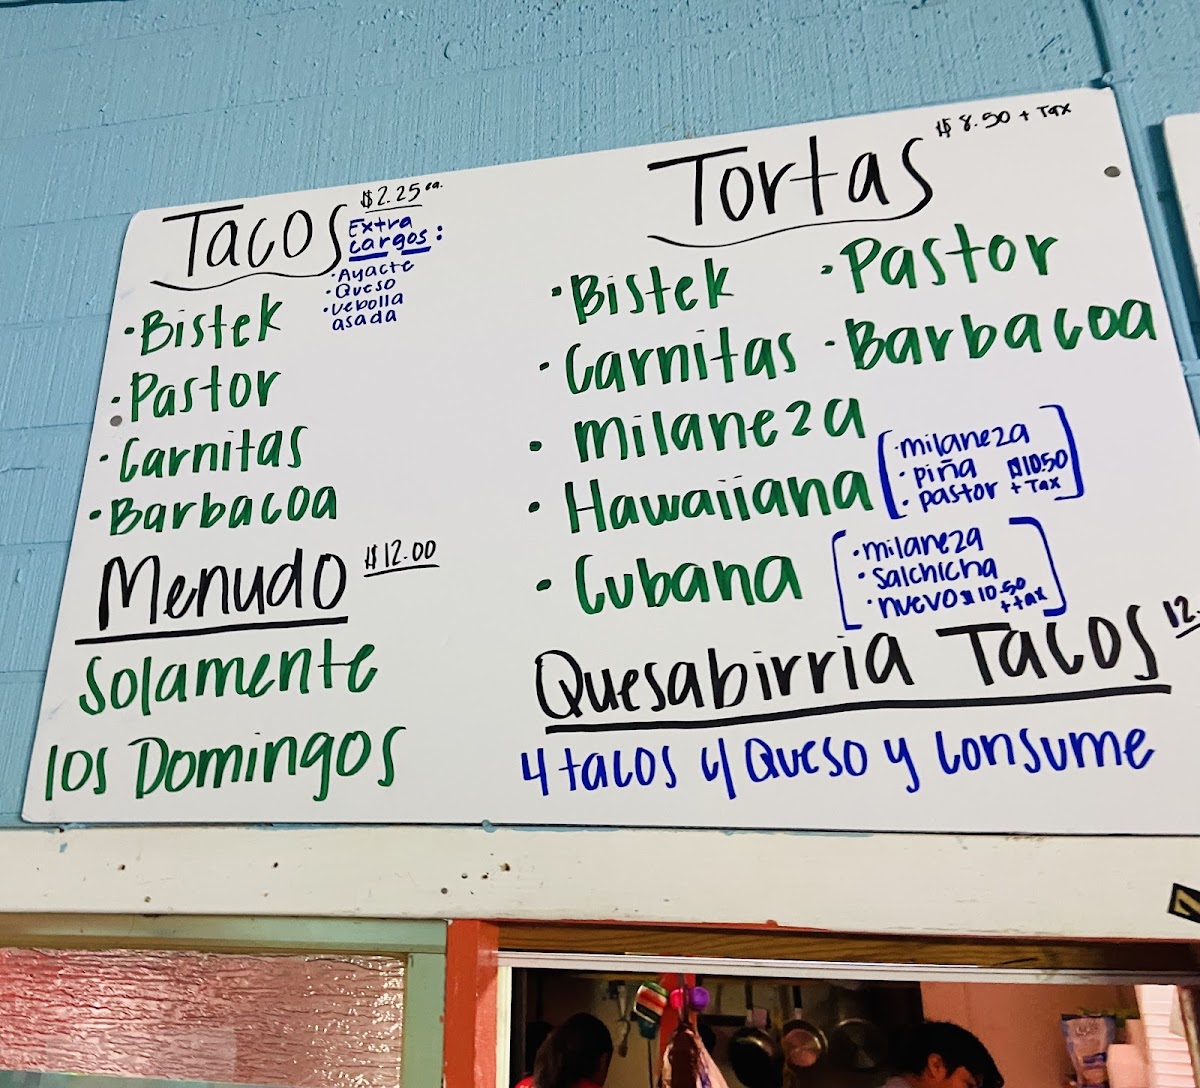 Tacos $2.25 ea.
Extra
cargos:
• Ayacte
• Queso
• Vebolla
asada
• Bistek
• Pastor
• Carnitas
• Barbacoa
Menudo $12.00
Solamente
los Domingos
Tortas $8.50 + Tax
• Bistek • Pastor
• Carnitas • Barbacoa
• Milaneza
• Hawaiiana
• milaneza
• piña $10.50
• pastor + Tax
• Cubana
• milaneza
• Salchicha
• nuevo $10.50
+ tax
Quesabirria Tacos 12.
4 tacos c/ Queso y Consume